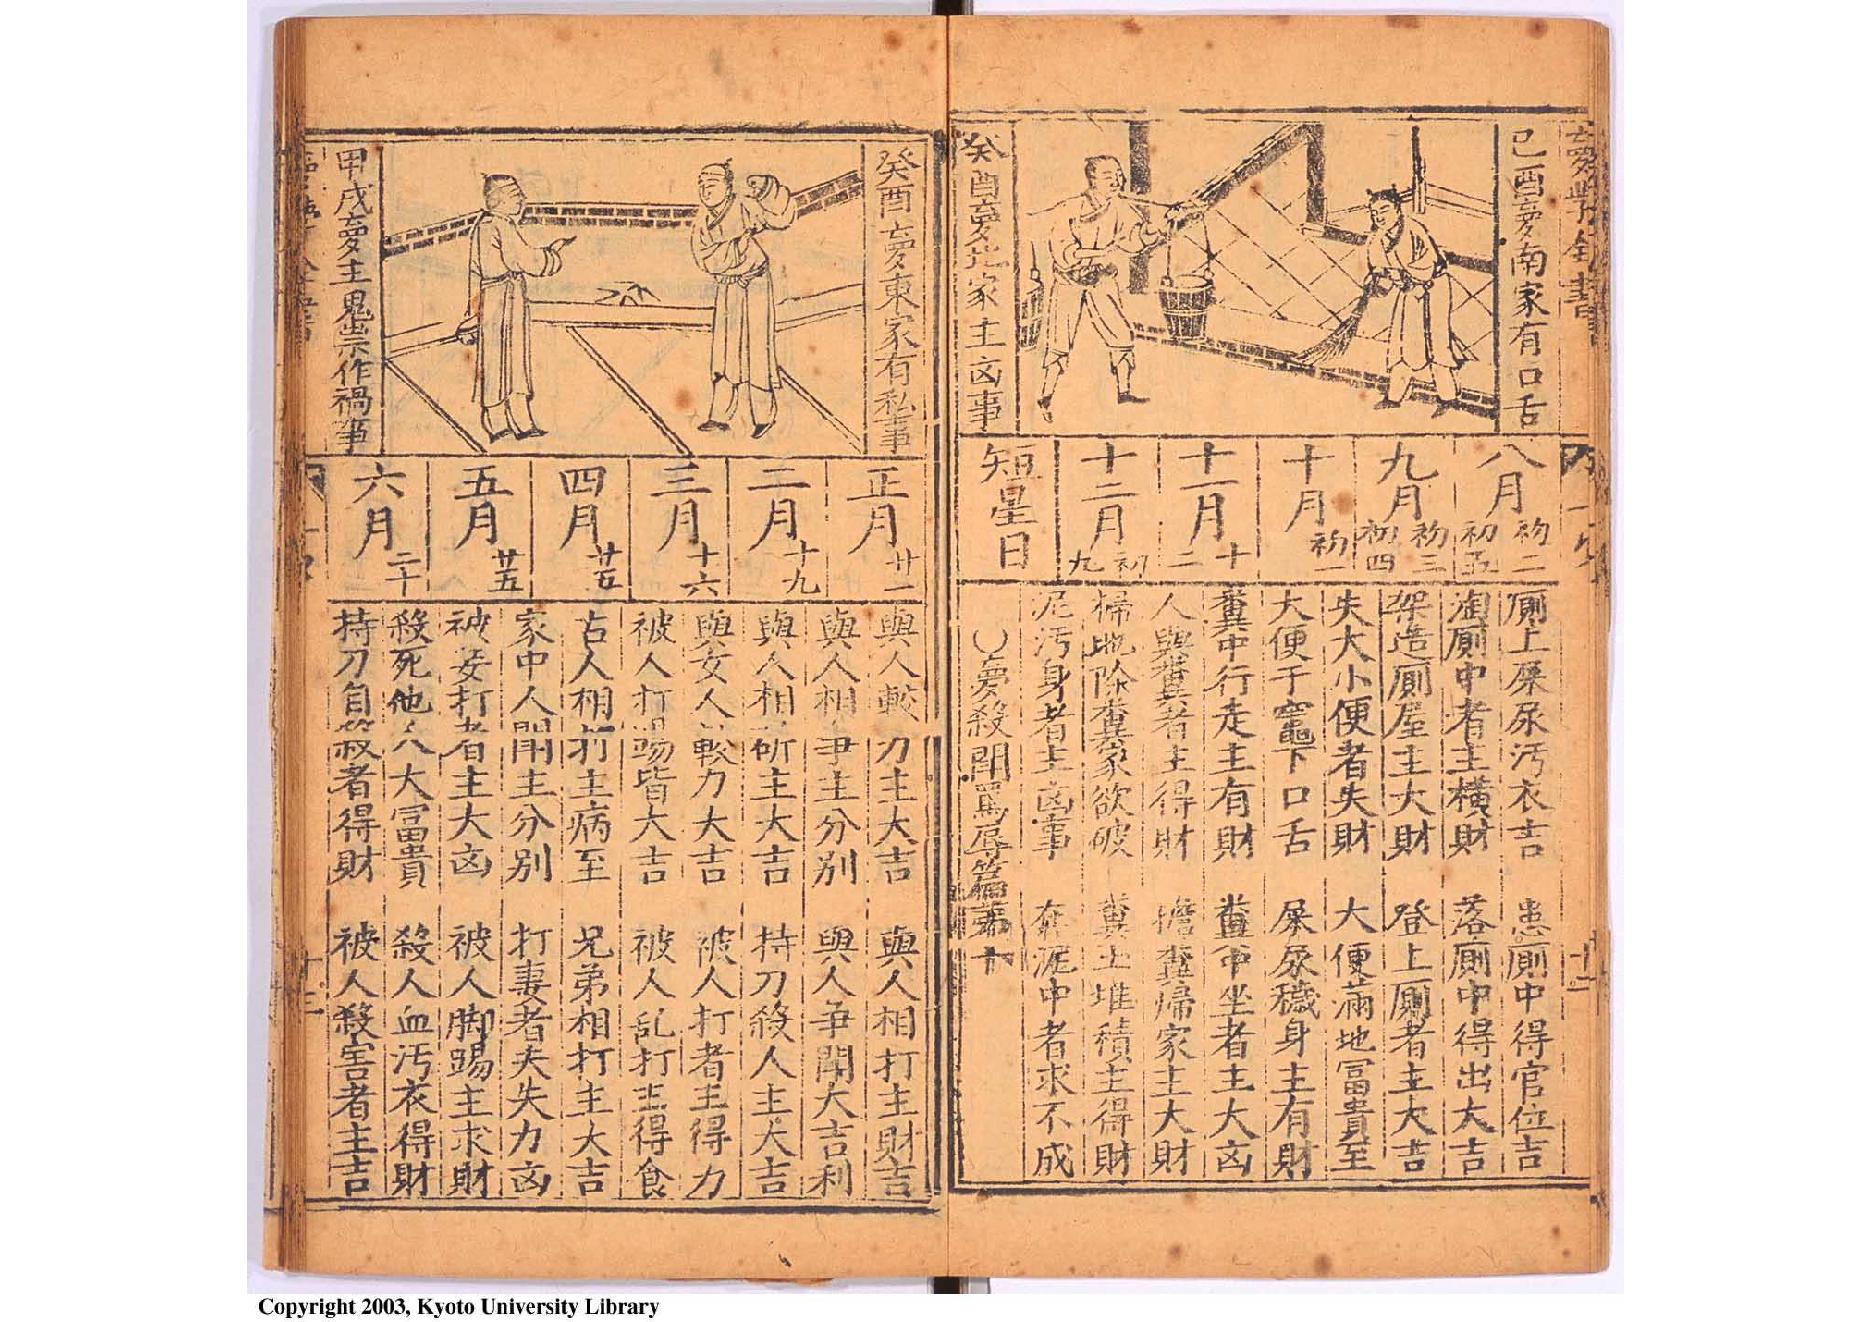 己酉夢南家有口舌
癸酉夢北家主凶事
八月
初二
初五
九月
初三
初四
十月
初一
十一月
十二
十二月
初九
短星日
厠上屎尿汚衣吉
患厠中得官位吉
淘厠中者主橫財
落厠中得出大吉
架造厠屋主大財
登上厠者主大吉
失大小便者失財
大便滿地冨貴至
大便于竈下口舌
屎尿穢身主有財
糞中行走主有財
糞中坐者主大凶
人與糞者主得財
擔糞歸家主大財
掃地除糞家欲破
糞土堆積主得財
泥汚身者主凶事
在泥中者求不成
夢殺鬪罵辱篇第十
癸酉夢東家有私事
甲戌夢主鬼祟作禍事
正月
廿一
二月
十九
三月
十六
四月
廿五
五月
廿五
六月
二十
與人較刀主大吉
與人相打主財吉
與人相爭主分別
與人爭鬪大吉利
與人相斫主大吉
持刀殺人主大吉
與女人較力大吉
被人打者主得力
被人打踢皆大吉
被人乱打主得食
古人相打主病至
兄弟相打主大吉
家中人鬪主分別
打妻者夫失力凶
被妾打者主大凶
被人脚踢主求財
殺死他人大冨貴
殺人血汚衣得財
持刀自殺者得財
被人殺害者主吉
Copyright 2003, Kyoto University Library